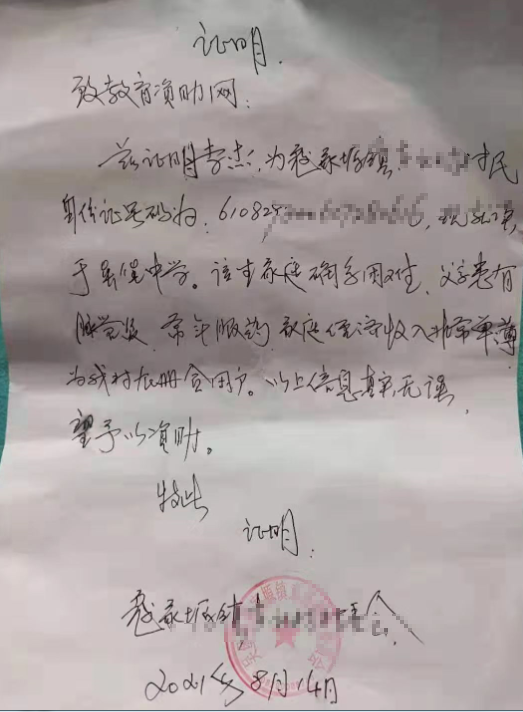 证明.
致教育资助网:
兹证明李杰,为 村民
身份证号码为:610829 ,现就读
于吴堡中学。该生家庭确系困难,父亲患有
脉管炎,常年服药,家庭经济收入非常单薄
为我村在册贫困户。以上信息真实无误,
望予以资助。
特此
证明.
2021年8月14日